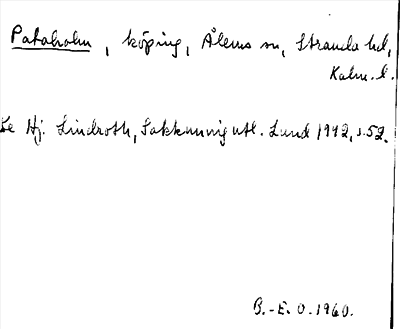 Pataholm, köping, Ålems sn, Stranda hd,
Kalm. l.
Se Hj. Lindroth, Sakkunnigutl. Lund 1942, s. 52.
B.-E. O. 1960.